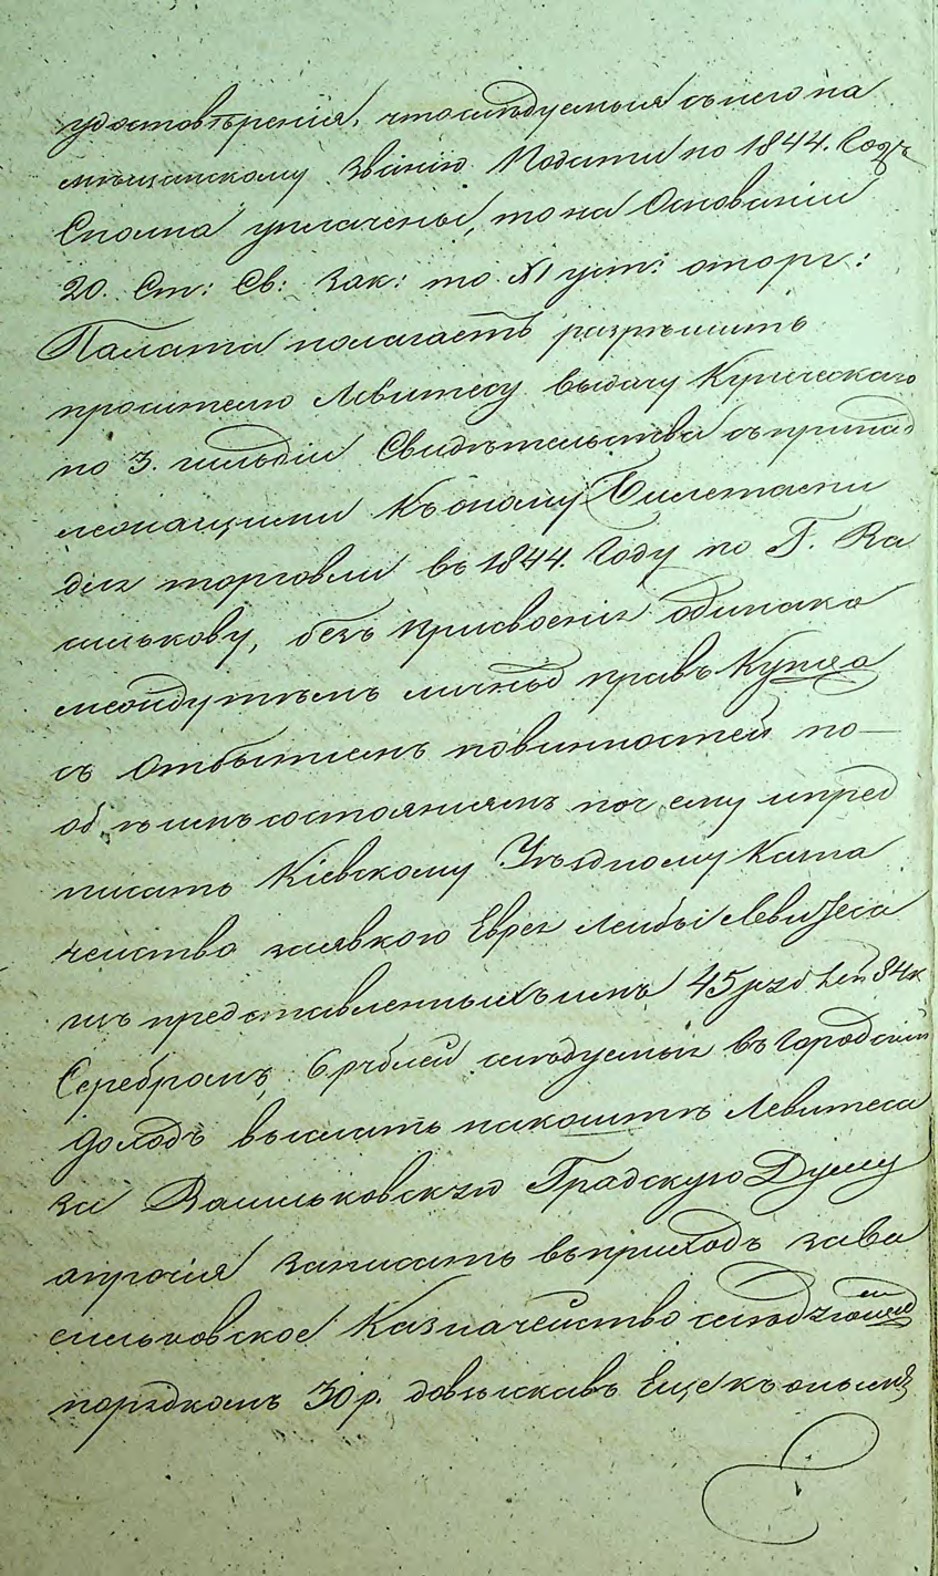 удостовѣренія, что слѣдуемыя съ него па
мѣщанскому званію Подати по 1844. Годъ
Сполна уплачены, то на Основаніи
20. Ст: Св: Зак: то XI уст: оторг:
Палата полагаетъ разрѣшить
просителю Левитесу выдачу Купеческаго
по 3. гильдіи Свидѣтельства съ принад
лежащими Къ оному Билетами
для торговли въ 1844. Году по Г. Ва
силькову, безъ присвоенія одинако
между тѣмъ личныхъ правъ Купца
съ Отбытіемъ повинностей по
об ѣимъ состояніямъ поч ему и пред
писать Кіевскому Уѣздному Казна
чейство заявкою Еврея Лейбы Левитеса
изъ представленныхъ имъ 45 рублей 84 к
Серебромъ, 6 рублей слѣдуемыя въ Городскій
доходъ выслать на коштъ Левитеса
за Васильковскую Градскую Думу
а прочія записать въ приходъ за Ва
сильковское Казначейство
порядкомъ 30 р. довзыскавъ Еще къ онымъ